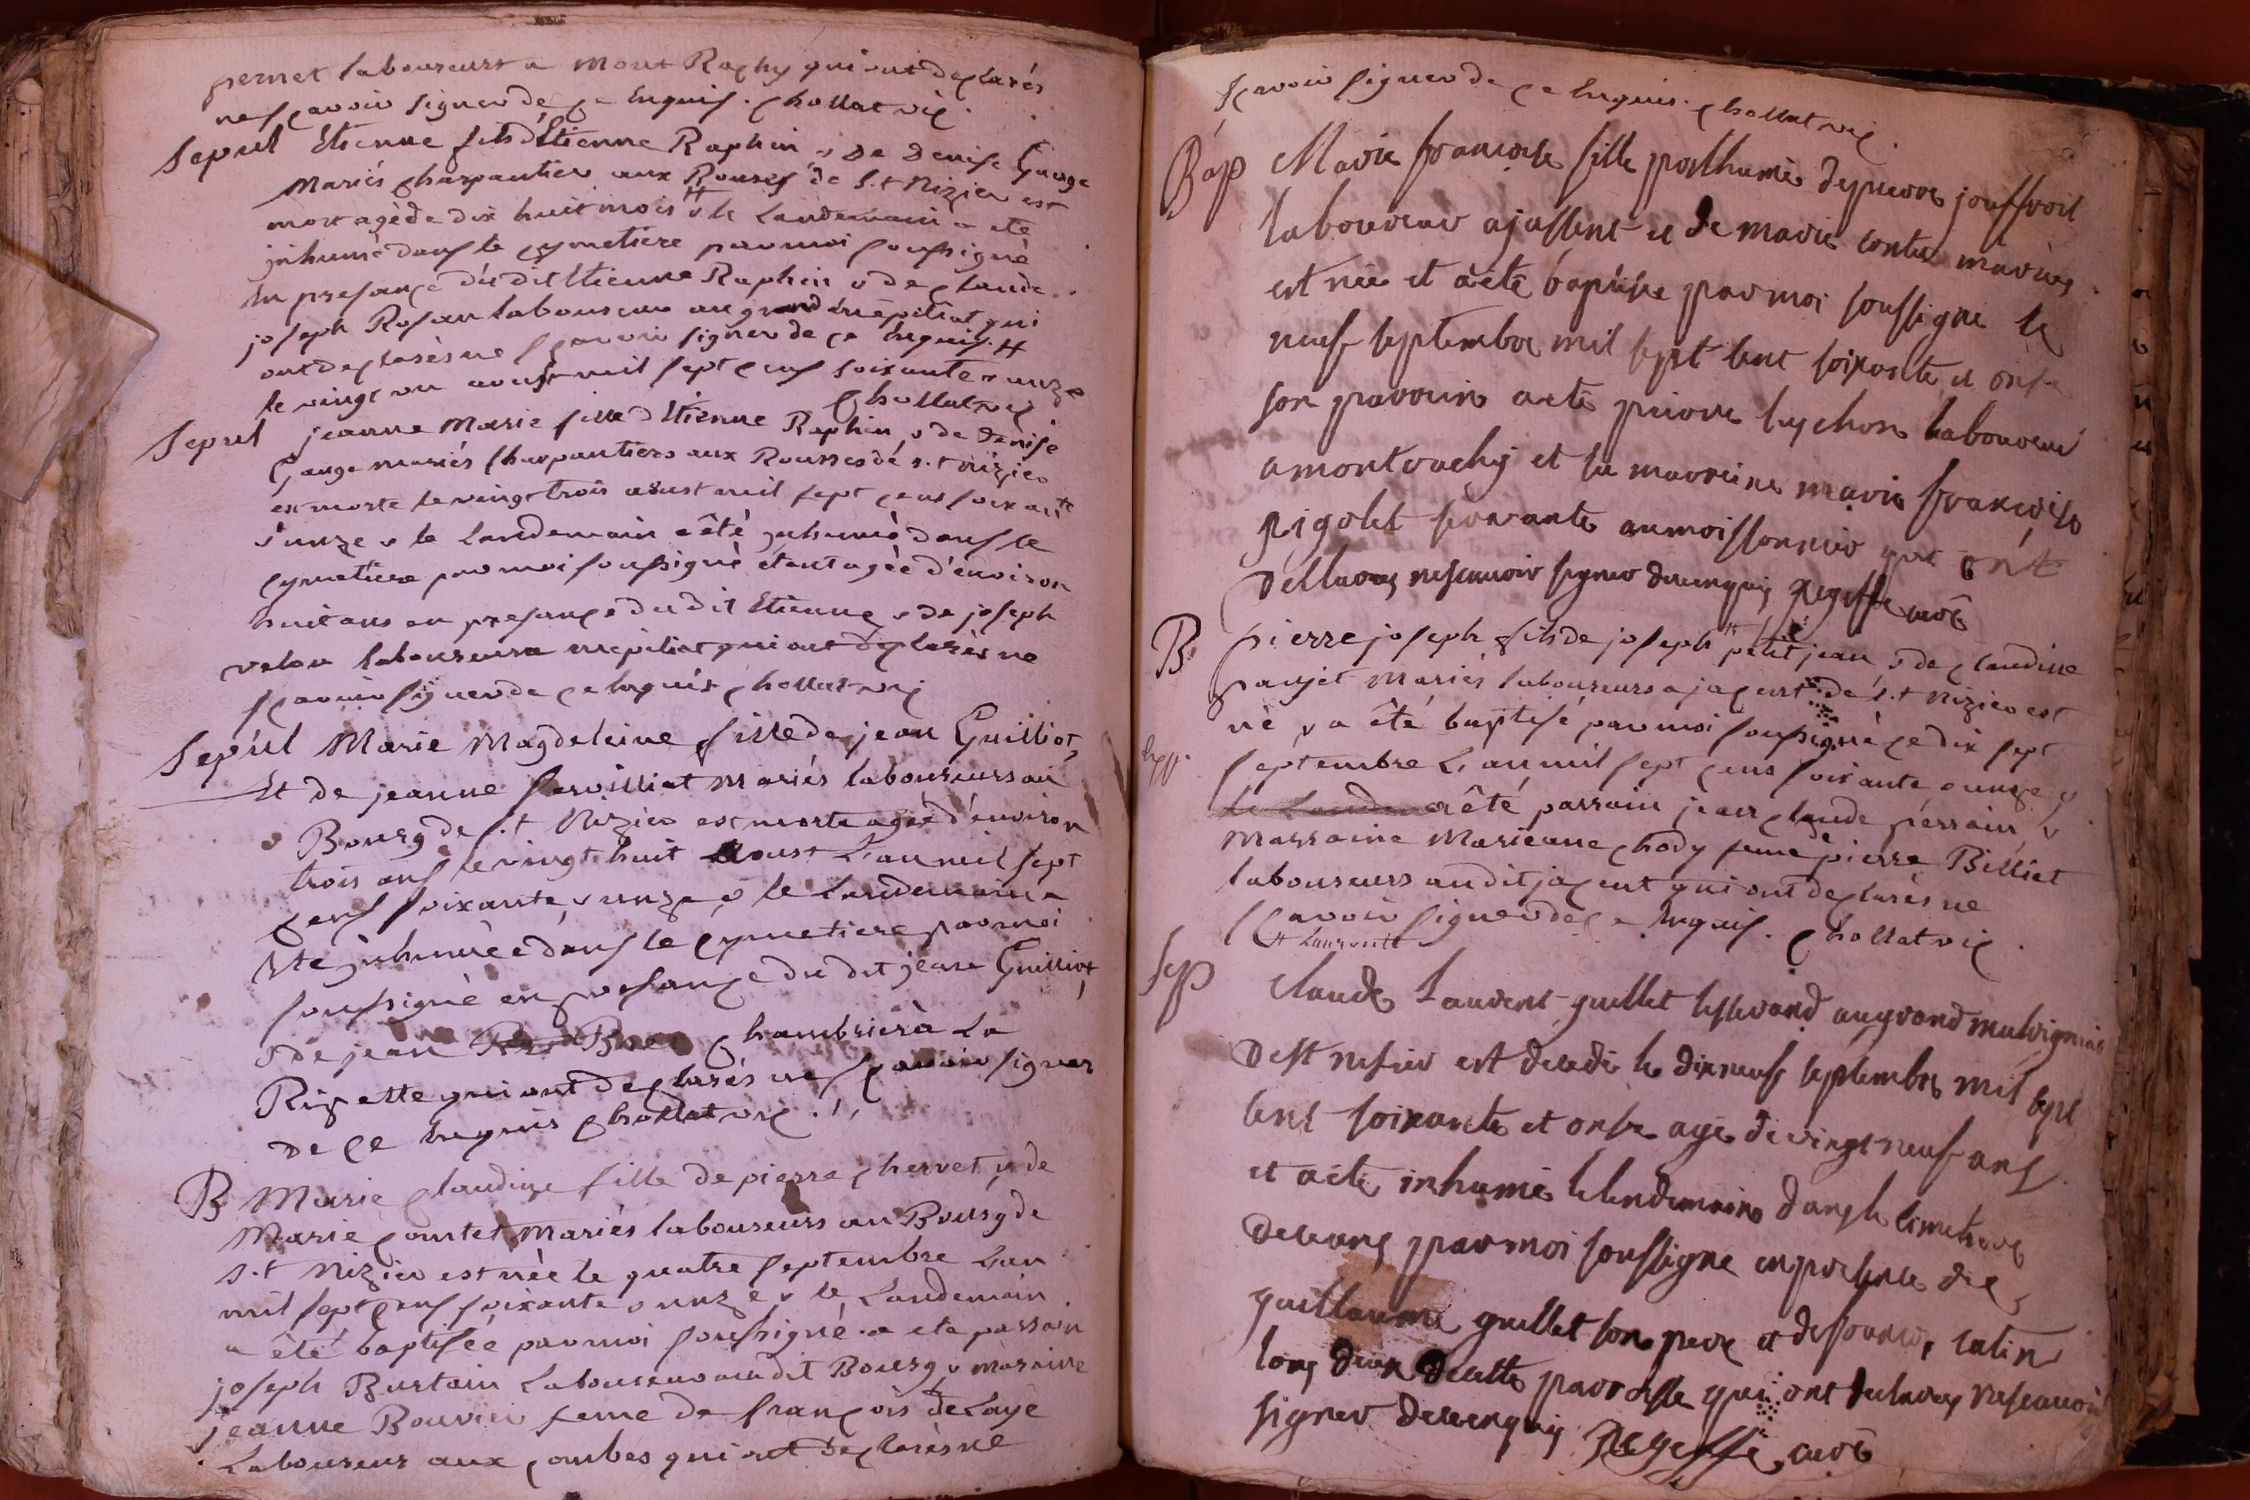 pernet laboureurs a Mont Rachy qui ont declarés
ne scavoir signer de ce enquis. Chollat vic.
Sepul Etienne fils d'Etienne Raphin & de Denise Gauge
Mariés charpantier aux Rousses de S.t Nizier est
mort agé de dix huit mois # & le Landemain a eté
jnhumé dans le cymetiere par moi soussigné
en presance du dit Etienne Raphin & de claude
joseph Rosan laboureur au grand qui
ont declarés ne scavoir signer de ce enquis. #
le vingt un aoust mil sept cens soixante & unze
Chollat vic
Sepul jeanne Marie fille d'Etienne Raphin, & de Denise
Gauge mariés Charpantiers aux Rousses de s.t nizier
est morte le vingt trois aoust mil sept cens soixante
& unze & le Landemain a été jnhumé dans le
cymetiere par moi soussigné étant agée d'environ
huit ans en presance du dit Etienne & de joseph
velon laboureur a qui ont declarés ne
scavoir signer de ce enquis Chollat vic
Sepul Marie Magdeleine fille de jean Guilliot,
Et de jeanne Servilliat Mariés laboureurs au
Bourg de S.t Nizier est morte agée d'environ
trois ans le vingt huit Aoust L'an mil sept
cens soixante & unze & le Landemain a
eté jnhumée dans le cymetiere par moi
soussigné en presance du dit jean Guilliot
& de jean chambrier à La
Rizette qui ont declarés ne scavoir signer
de ce enquis Chollat vic.
B Marie Claudine fille de pierre chervet & de
Marie Contet Mariés laboureurs au Bourg de
S.t Nizier est née le quatre septembre L'an
mil sept cens soixante & unze & le Landemain
a été baptisée par moi soussigné. a eté parrain
joseph Burtain Laboureur au dit Bourg & maraine
jeanne Bouvier feme de françois De Laye
Laboureur aux combes qui ont declarés ne
scavoir signer de ce enquis. Chollat vic.
Bap Marie francoise fille posthume de pierre jouffroit
laboureur a jassent et de marie contet mariés
est née et a eté baptisée par moi soussigné le
neuf septembre mil sept cent soixante et onse
son parrain a eté pierre laboureur
a montrachy et sa marreine marie francoise
pigolet servante au moissonnier qui ont
dellarés ne scavoir signer de ce enquis Regeffe curé
B pierre joseph fils de joseph petit jean & de claudine
paujet Mariés laboureurs a jacent de S.t Nizier est
né & a été baptisé par moi soussigné ce dix sept
septembre L'an mil sept cens soixante & unze &
a été parrain jean claude perrain &
marraine Marieane chody feme de pierre Billiet
laboureurs au dit jacent qui ont declarés ne
scavoir signer de ce enquis. Chollat vic.
# Laurent
Sep Claude Laurent guillet au grand malvignia
de st nisier est decedé le dix neuf septembre mil sept
cent soixante et onse agé de vingt neuf ans
et a eté inhumé le lendemain dans le cimetiere
de ceans par moi soussigné en presence de
guillaume guillet son pere et de catin
tous deux de cette parroisse qui ont declarés ne scavoir
signer de ce enquis Regeffe curé